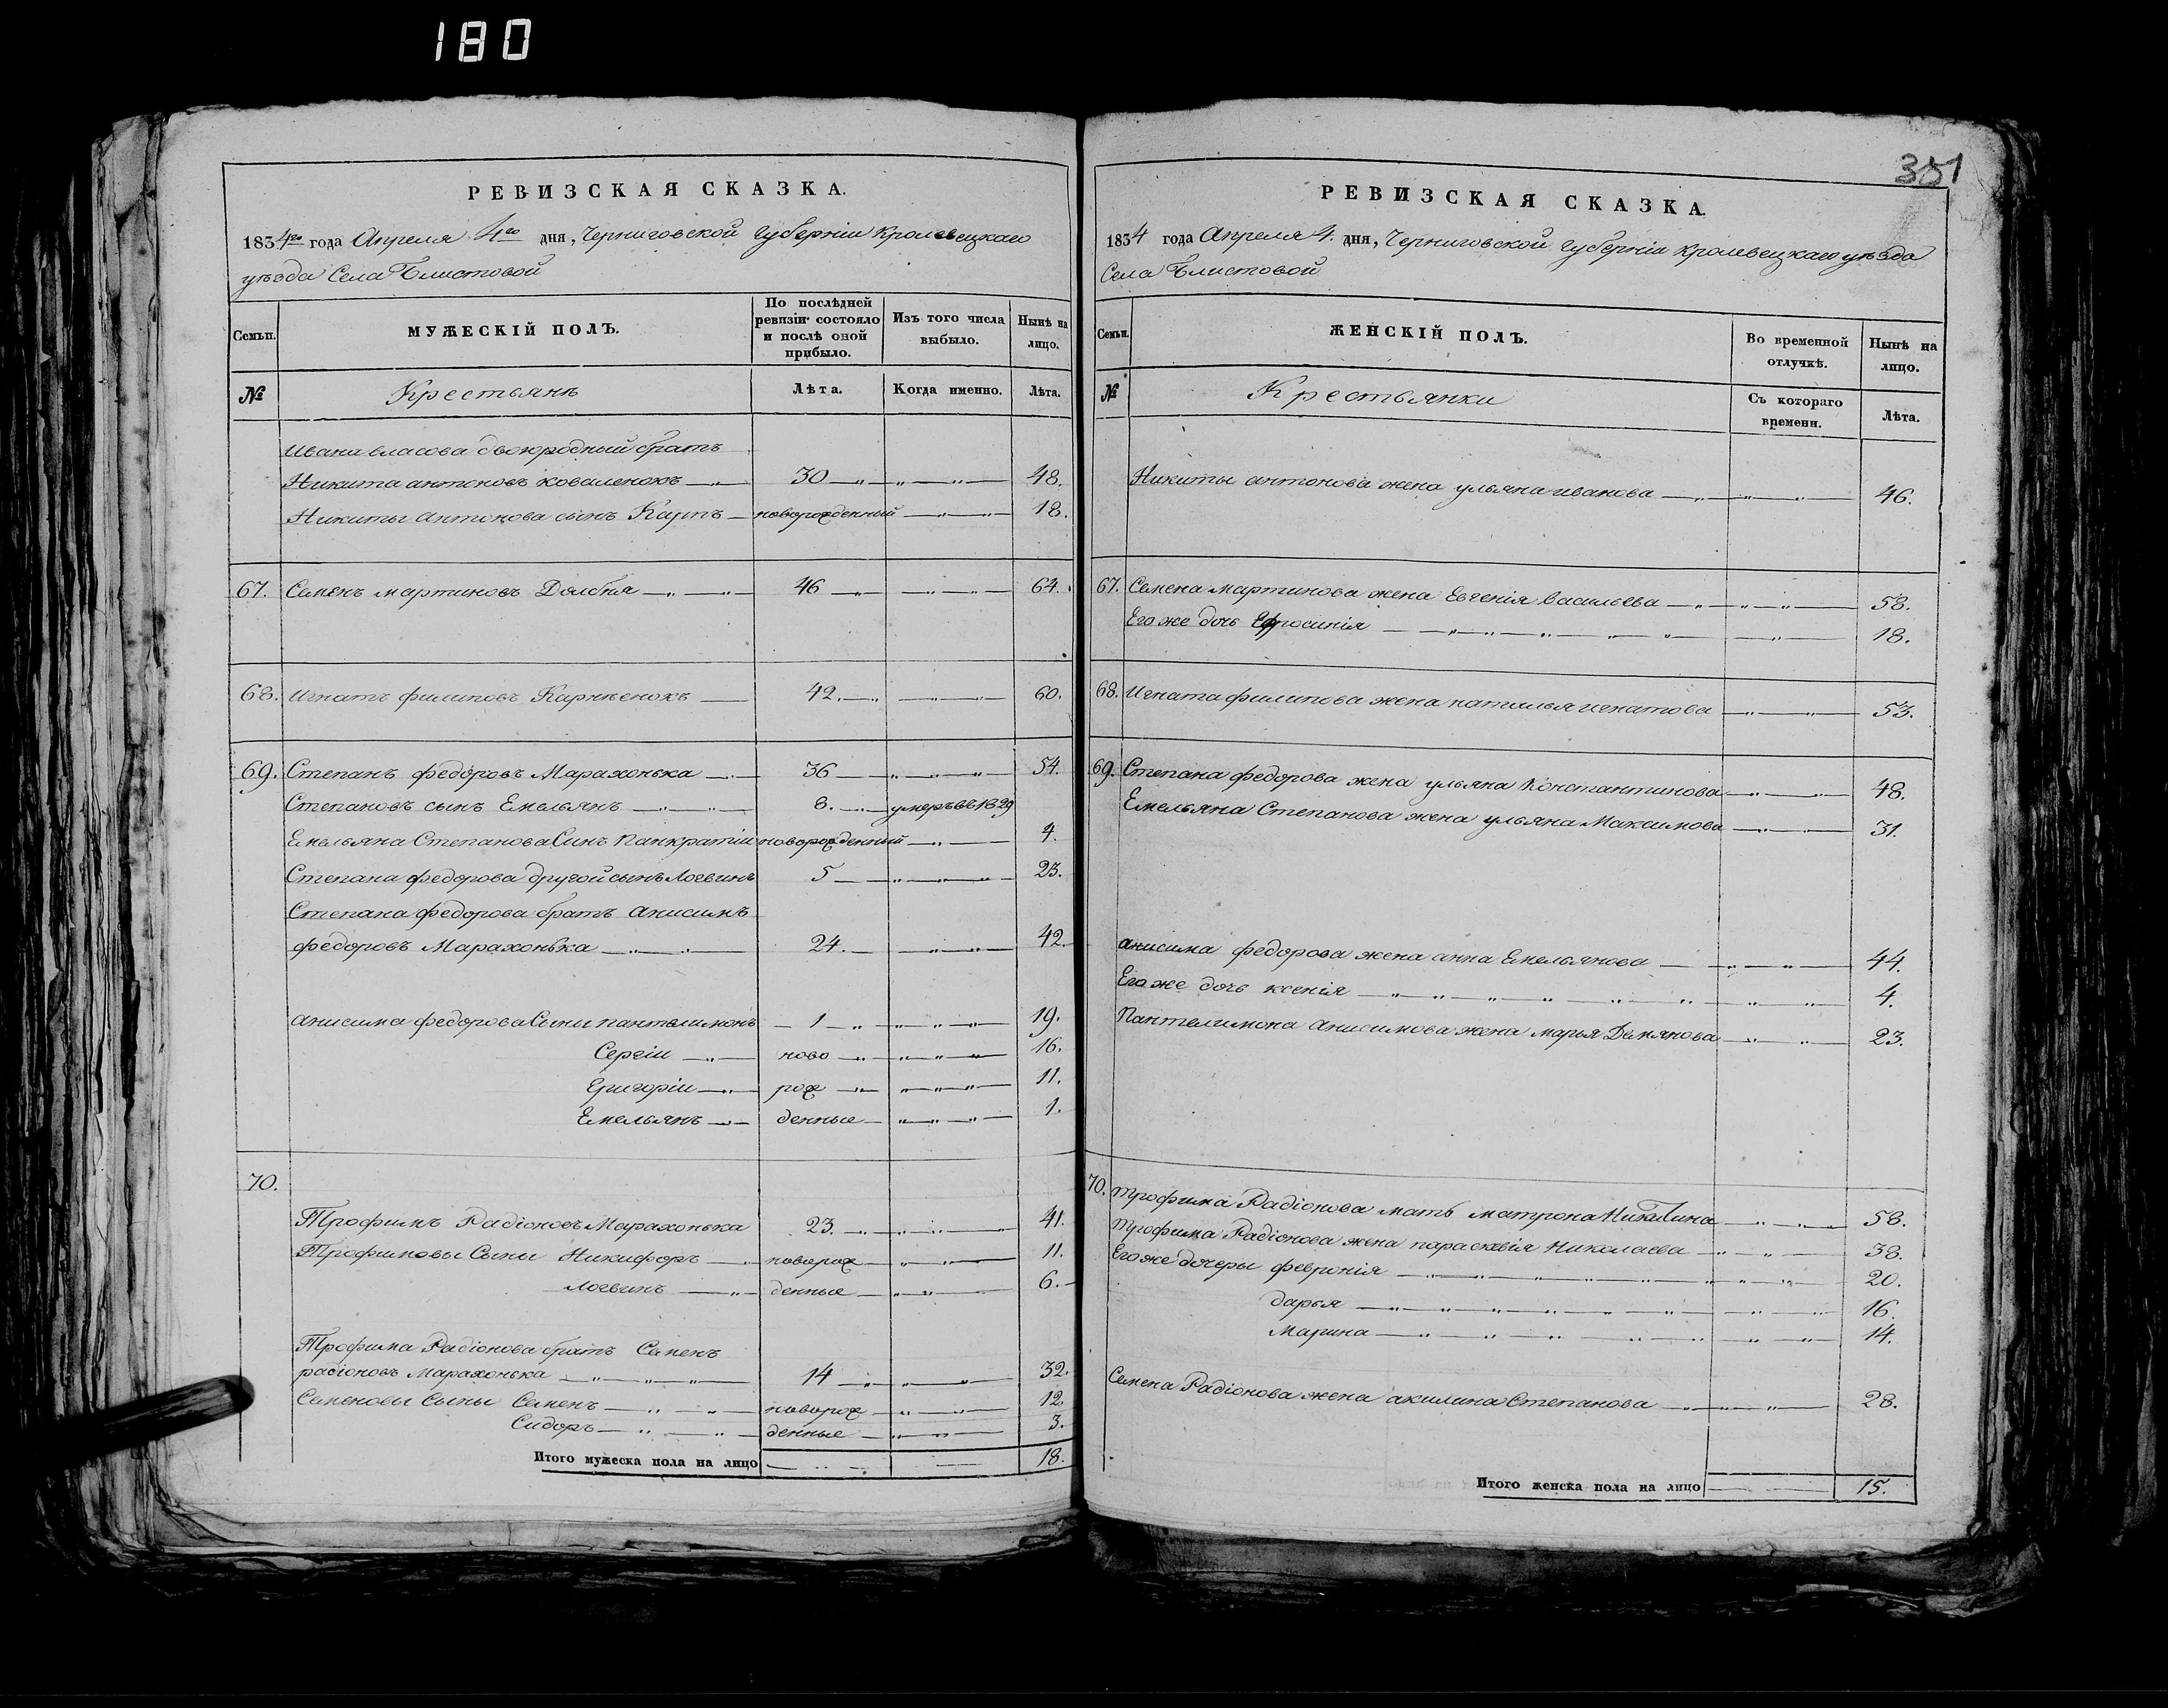 180
РЕВИЗСКАЯ СКАЗКА.
1834го года Апреля 4го дня, Черниговской Губернiи Кролевецкаго
уѣзда Села Блистовой
Семьи.
МУЖЕСКIЙ ПОЛЪ.
По послѣдней ревизiи состояло и послѣ оной прибыло.
Изъ того числа выбыло.
Нынѣ на лицо.
№
Крестьянъ
Лѣта.
Когда именно.
Лѣта.
Ивана власова двоюродный братъ
Никита антоновъ коваленокъ 30 48.
Никиты Антонова сынъ Карпъ новорожденный 18.
67. Семенъ мартиновъ Долбня 46 64.
68. Игнатъ филиповъ Карпѣенокъ 42. 60.
69. Степанъ федоровъ Марахонька 36 54.
Степановъ сынъ Емельянъ 8. умеръ въ 1829
Емельяна Степанова Синъ Панкратiи новорожденный 4.
Степана федорова другой сынъ Логвинъ 5 23.
Степана федорова братъ анисимъ
федоровъ Марахонька 24. 42.
анисима федорова Сыни пантелимонъ 1 19.
Сергiи ново 16.
Григорiи рож 11.
Емельянъ денные 1.
70.
Трофимъ Радiоновъ Марахонька 23. 41.
Трофимовы Сыны Никифоръ новорож 11.
Логвинъ денные 6.
Трофима Радiонова братъ Семенъ
радiоновъ Марахонька 14 32.
Семеновы Сыны Семенъ новорож 12.
Сидоръ денные 3.
Итого мужеска пола на лицо 18.
351
РЕВИЗСКАЯ СКАЗКА.
1834 года Апреля 4. дня, Черниговской Губернiи Кролевецкаго уѣзда
Села Блистовой
Семьи.
ЖЕНСКIЙ ПОЛЪ.
Во временной отлучкѣ.
Нынѣ на лицо.
№
Крестьянки
Съ котораго времени.
Лѣта.
Никиты антонова жена ульяна иванова 46.
67. Семена мартинова жена Евгенiя васильева 58.
Его же дочь Ефросинiя 18.
68. Игната филипова жена наталья игнатова 53.
69. Степана федорова жена ульяна Константинова 48.
Емельяна Степанова жена ульяна Максимова 31.
анисима федорова жена анна Емельянова 44.
Его же дочь ксенiя 4.
Пантелимона анисимова жена марья Демянова 23.
70. трофима Радiонова мать матрона Никитина 58.
трофима Радiонова жена параскевiя Николаева 38.
Его же дочеры февронiя 20.
дарья 16.
Марина 14.
Семена Радiонова жена акилина Степанова 28.
Итого женска пола на лицо 15.